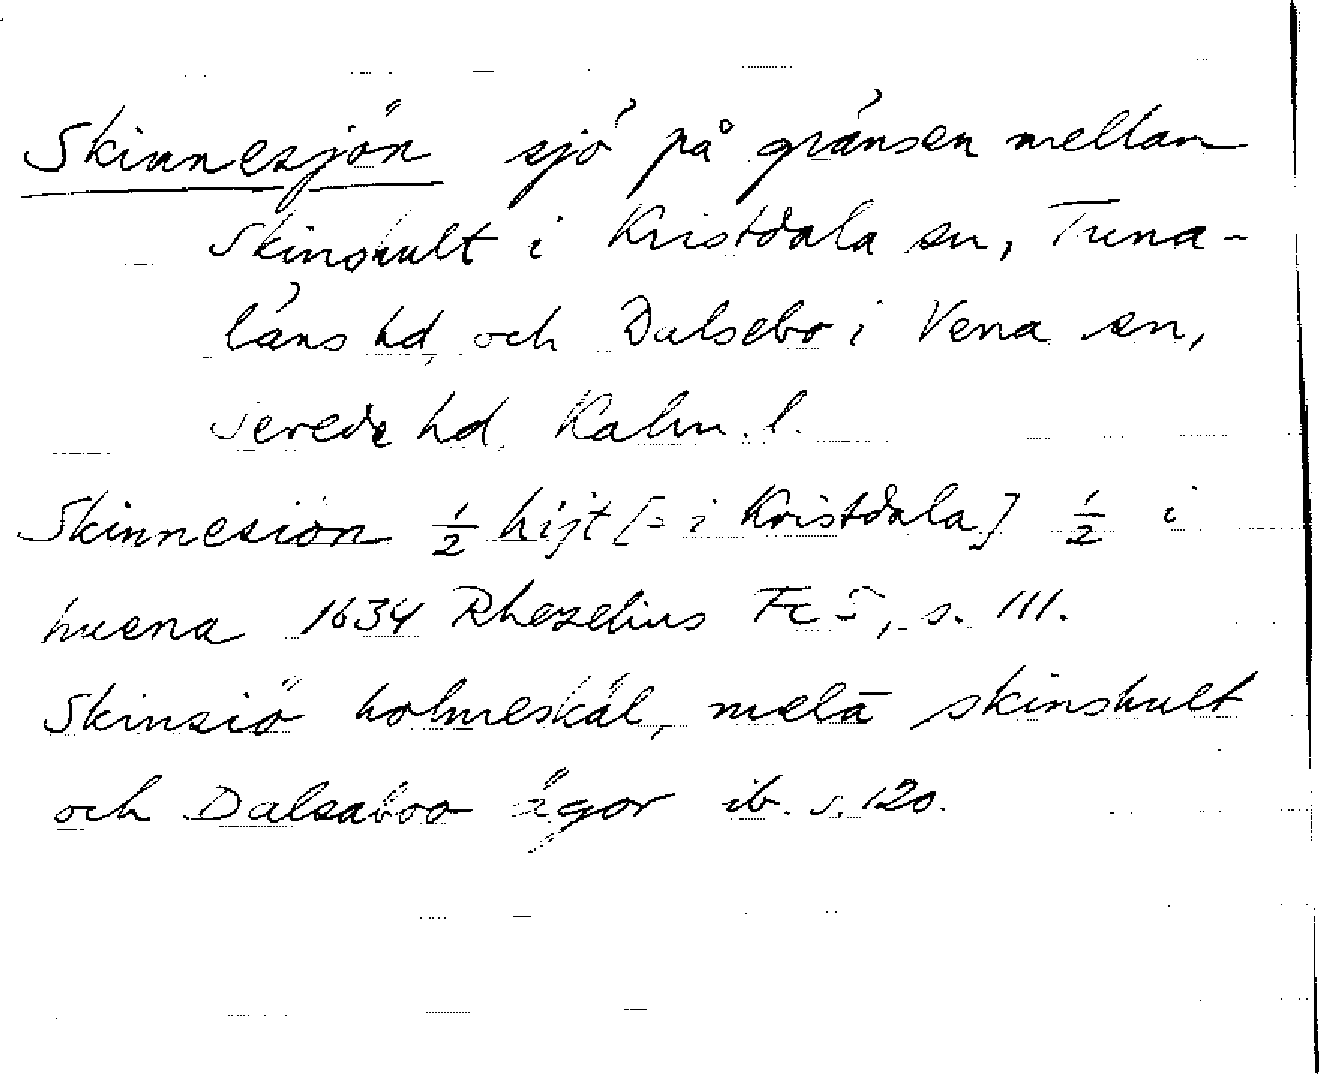 Skinnesjön sjö på gränsen mellan
Skinshult i Kristdala sn, Tuna-
läns hd, och Dalsebo i Vena sn,
Sevede hd, Kalm. l.
Skinnesiön ½ hijt [= i Kristdala] ½ i
huena 1634 Rhezelius Fc 5, s. 111.
Skinsiö holmeskäl, melā skinshult
och Dalsaboo ägor ib. s. 120.